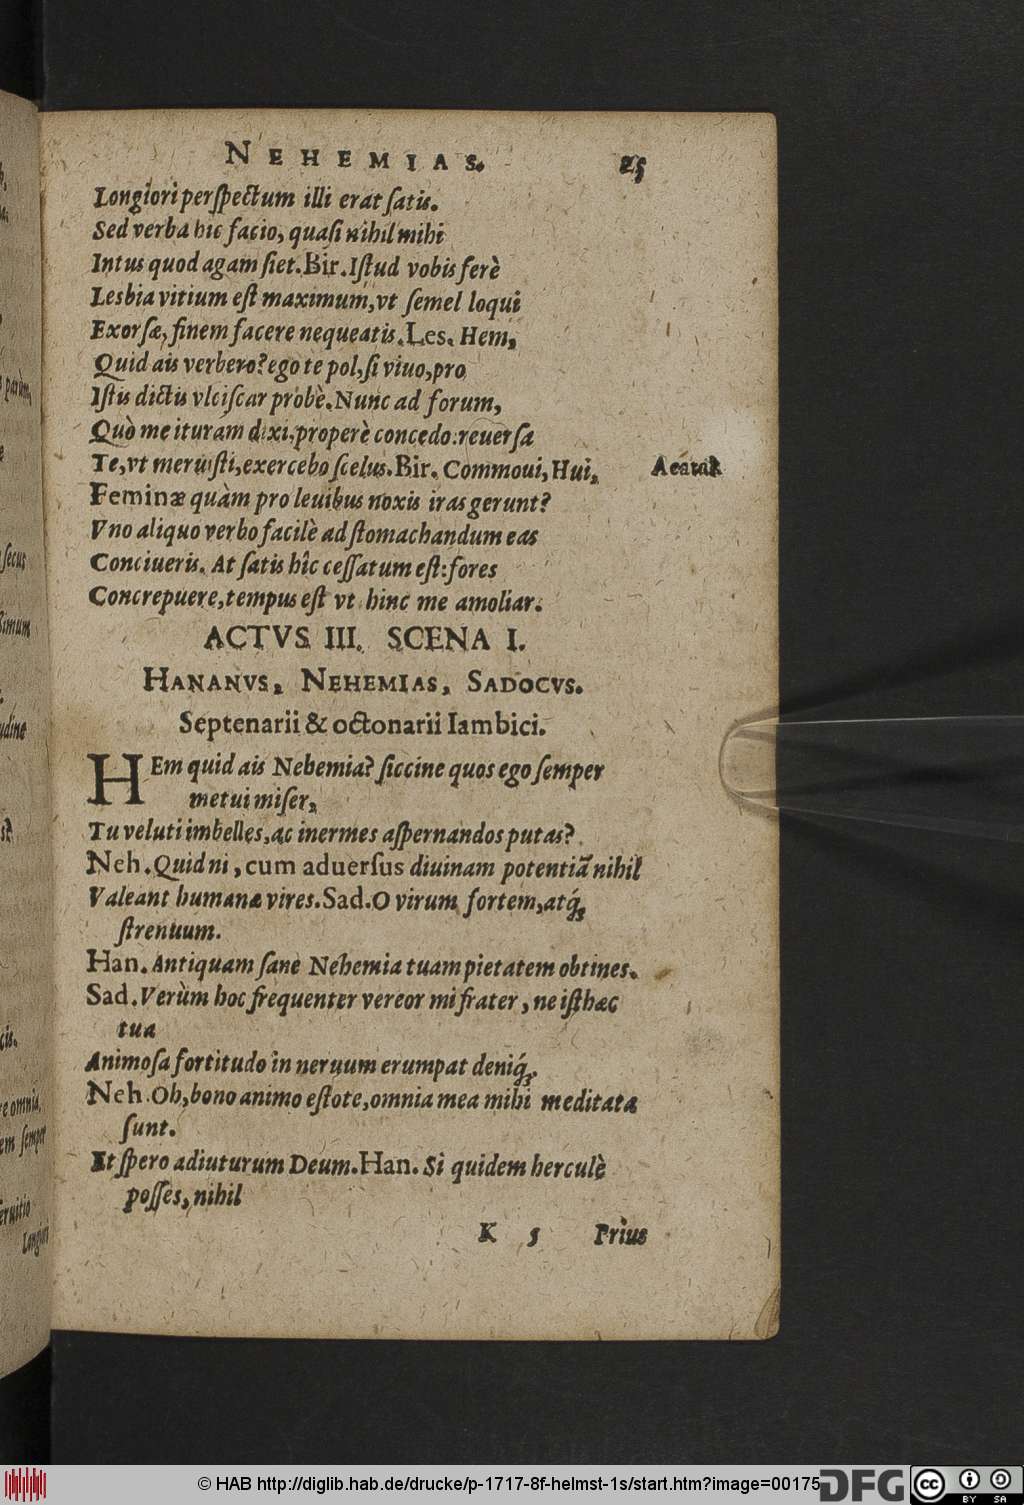 NEHEMIAS. 25
Longiori perſpectum illi erat ſatis.
Sed verba hic facio, quaſi nihil mihi
Intus quod agam ſiet. Bir. Iſtud vobis ferè
Lesbia vitium eſt maximum, vt ſemel loqui
Exorſæ, finem facere nequeatis. Les. Hem,
Quid ais verbero? ego te pol, ſi viuo, pro
Iſtis dictis vlciſcar probè. Nunc ad forum,
Quò me ituram dixi, properè concedo: reuerſa
Te, vt meruiſti, exercebo ſcelus. Bir. Commoui, Hui,
Feminæ quàm pro leuibus noxis iras gerunt?
Vno aliquo verbo facilè ad ſtomachandum eas
Conciueris. At ſatis hîc ceſſatum eſt: fores
Concrepuere, tempus eſt vt hinc me amoliar.
ACTVS III. SCENA I.
HANANVS, NEHEMIAS, SADOCVS.
Septenarii & octonarii Iambici.
HEm quid ais Nehemia? ſiccine quos ego ſemper
metui miſer,
Tu veluti imbelles, ac inermes aſpernandos putas?
Neh. Quid ni, cum aduerſus diuinam potentiã nihil
Valeant humanæ vires. Sad. O virum fortem, atq́;
ſtrenuum.
Han. Antiquam ſanè Nehemia tuam pietatem obtines.
Sad. Verùm hoc frequenter vereor mi frater, ne iſthæc
tua
Animoſa fortitudo in neruum erumpat deniq́;.
Neh. Oh, bono animo eſtote, omnia mea mihi meditata
ſunt.
Et ſpero adiuturum Deum. Han. Si quidem herculè
poſſes, nihil
K 5 Prius
© HAB http://diglib.hab.de/drucke/p-1717-8f-helmst-1s/start.htm?image=00175
DFG
CC BY SA